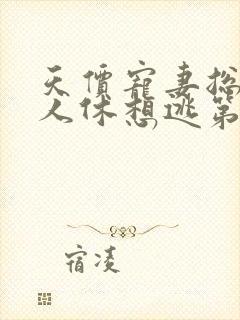 天價寵妻总
人休想逃第
宿凌